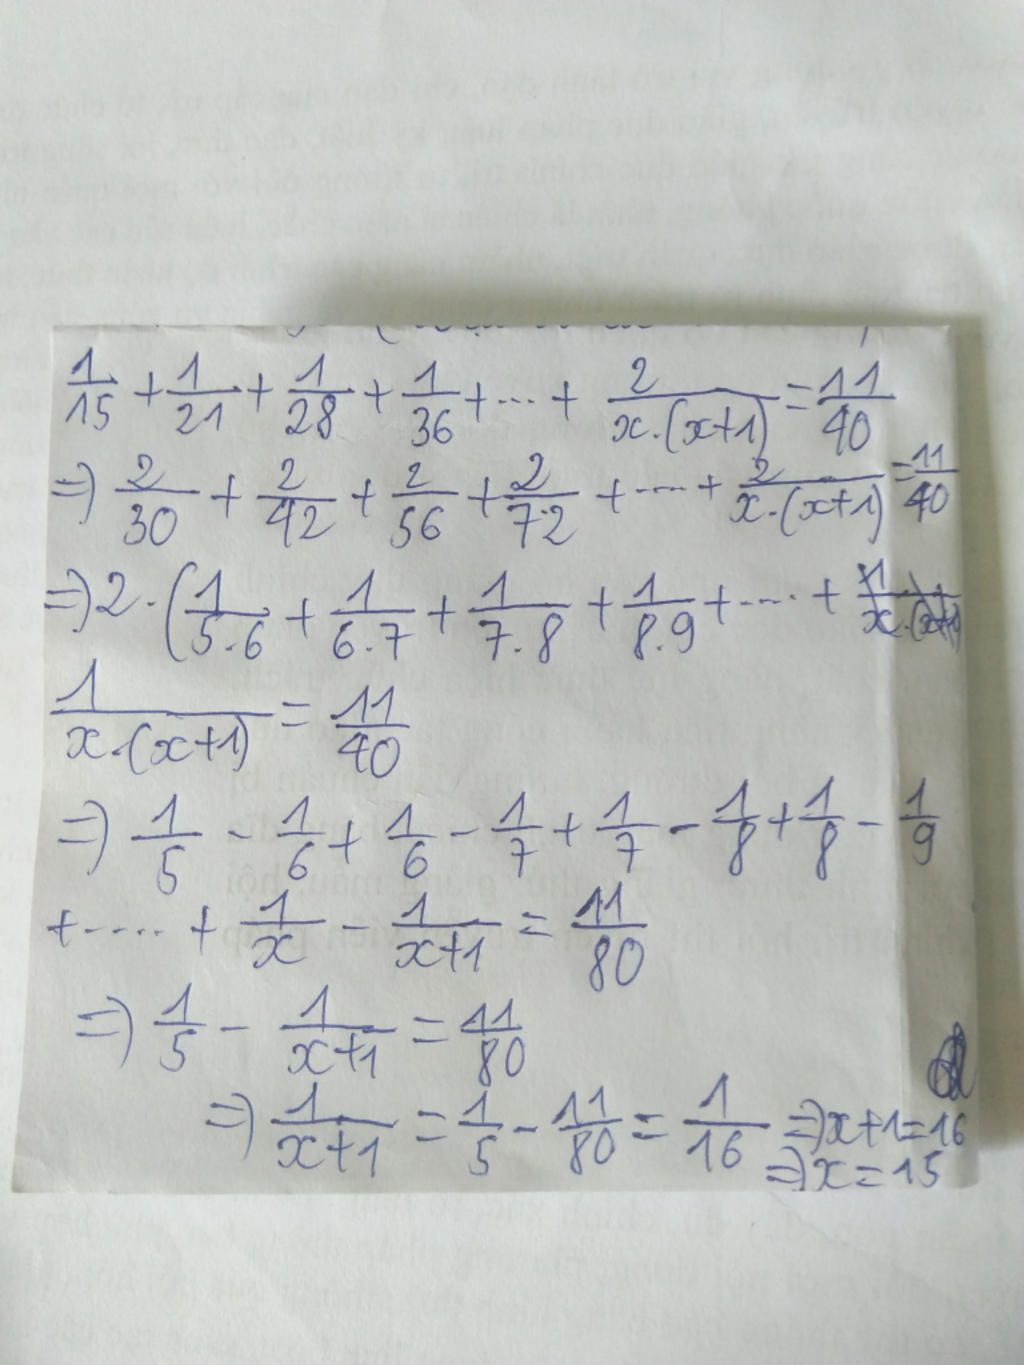 1/15 + 1/21 + 1/28 + 1/36 + ... + 2/x.(x+1) = 11/40
=> 2/30 + 2/42 + 2/56 + 2/72 + .... + 2/x.(x+1) = 11/40
=> 2.(1/5.6 + 1/6.7 + 1/7.8 + 1/8.9 + .... +
1/x.(x+1) = 11/40
=> 1/5 - 1/6 + 1/6 - 1/7 + 1/7 - 1/8 + 1/8 - 1/9
+ .... + 1/x - 1/x+1 = 11/80
=> 1/5 - 1/x+1 = 11/80
=> 1/x+1 = 1/5 - 11/80 = 1/16 => x+1=16
=> x = 15